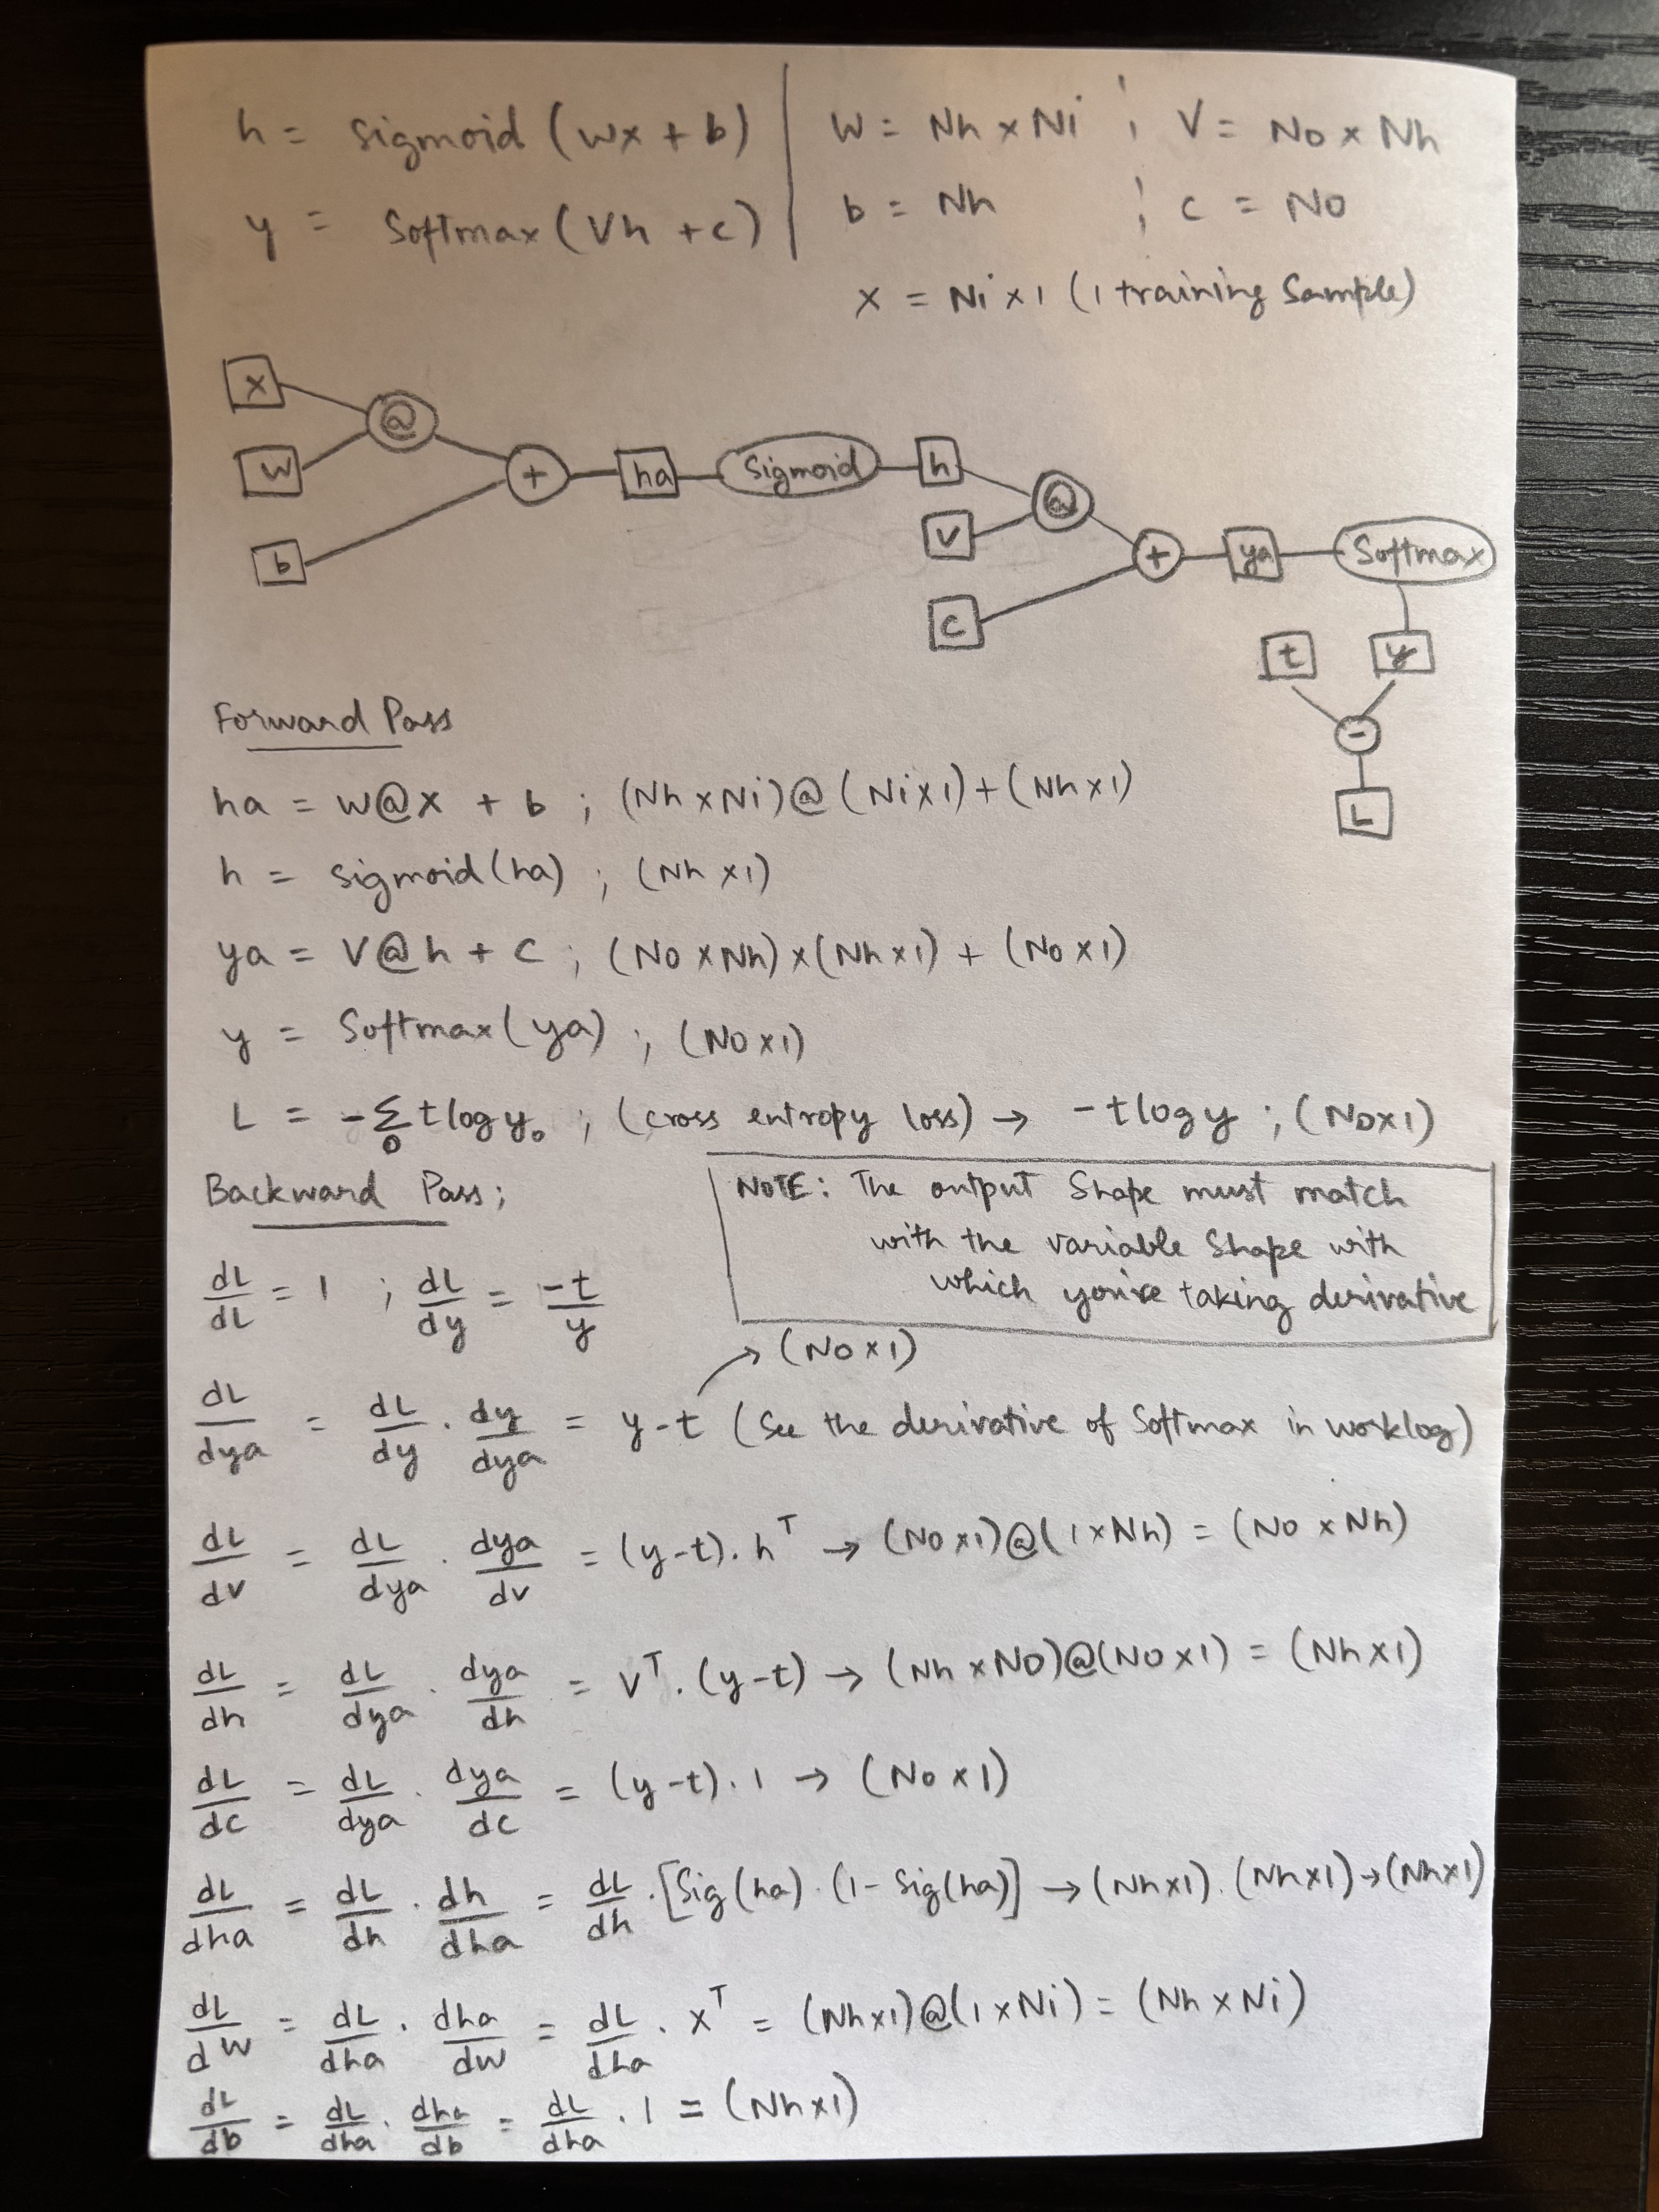 h = sigmoid (wx + b) | W = Nh x Ni ; V = No x Nh
y = Softmax (Vh + c) | b = Nh ; c = No
x = Ni x 1 (1 training Sample)
x
@
w
+
ha
Sigmoid
h
@
b
v
+
ya
Softmax
c
t
y
-
L
Forward Pass
ha = w@x + b ; (Nh x Ni)@(Ni x 1) + (Nh x 1)
h = sigmoid(ha) ; (Nh x 1)
ya = V@h + C ; (No x Nh) x (Nh x 1) + (No x 1)
y = Softmax(ya) ; (No x 1)
L = -Σ_o t log y_o ; (cross entropy loss) → -t log y ; (No x 1)
Backward Pass;
NOTE: The output Shape must match
with the variable Shape with
which you're taking derivative
dL/dL = 1 ; dL/dy = -t/y
→ (No x 1)
dL/dya = dL/dy . dy/dya = y-t (See the derivative of Softmax in worklog)
dL/dv = dL/dya . dya/dv = (y-t). h^T → (No x 1)@(1 x Nh) = (No x Nh)
dL/dh = dL/dya . dya/dh = V^T. (y-t) → (Nh x No)@(No x 1) = (Nh x 1)
dL/dc = dL/dya . dya/dc = (y-t). 1 → (No x 1)
dL/dha = dL/dh . dh/dha = dL/dh . [Sig(ha) . (1 - Sig(ha)] → (Nh x 1). (Nh x 1) → (Nh x 1)
dL/dW = dL/dha . dha/dw = dL/dha . x^T = (Nh x 1)@(1 x Ni) = (Nh x Ni)
dL/db = dL/dha . dha/db = dL/dha . 1 = (Nh x 1)